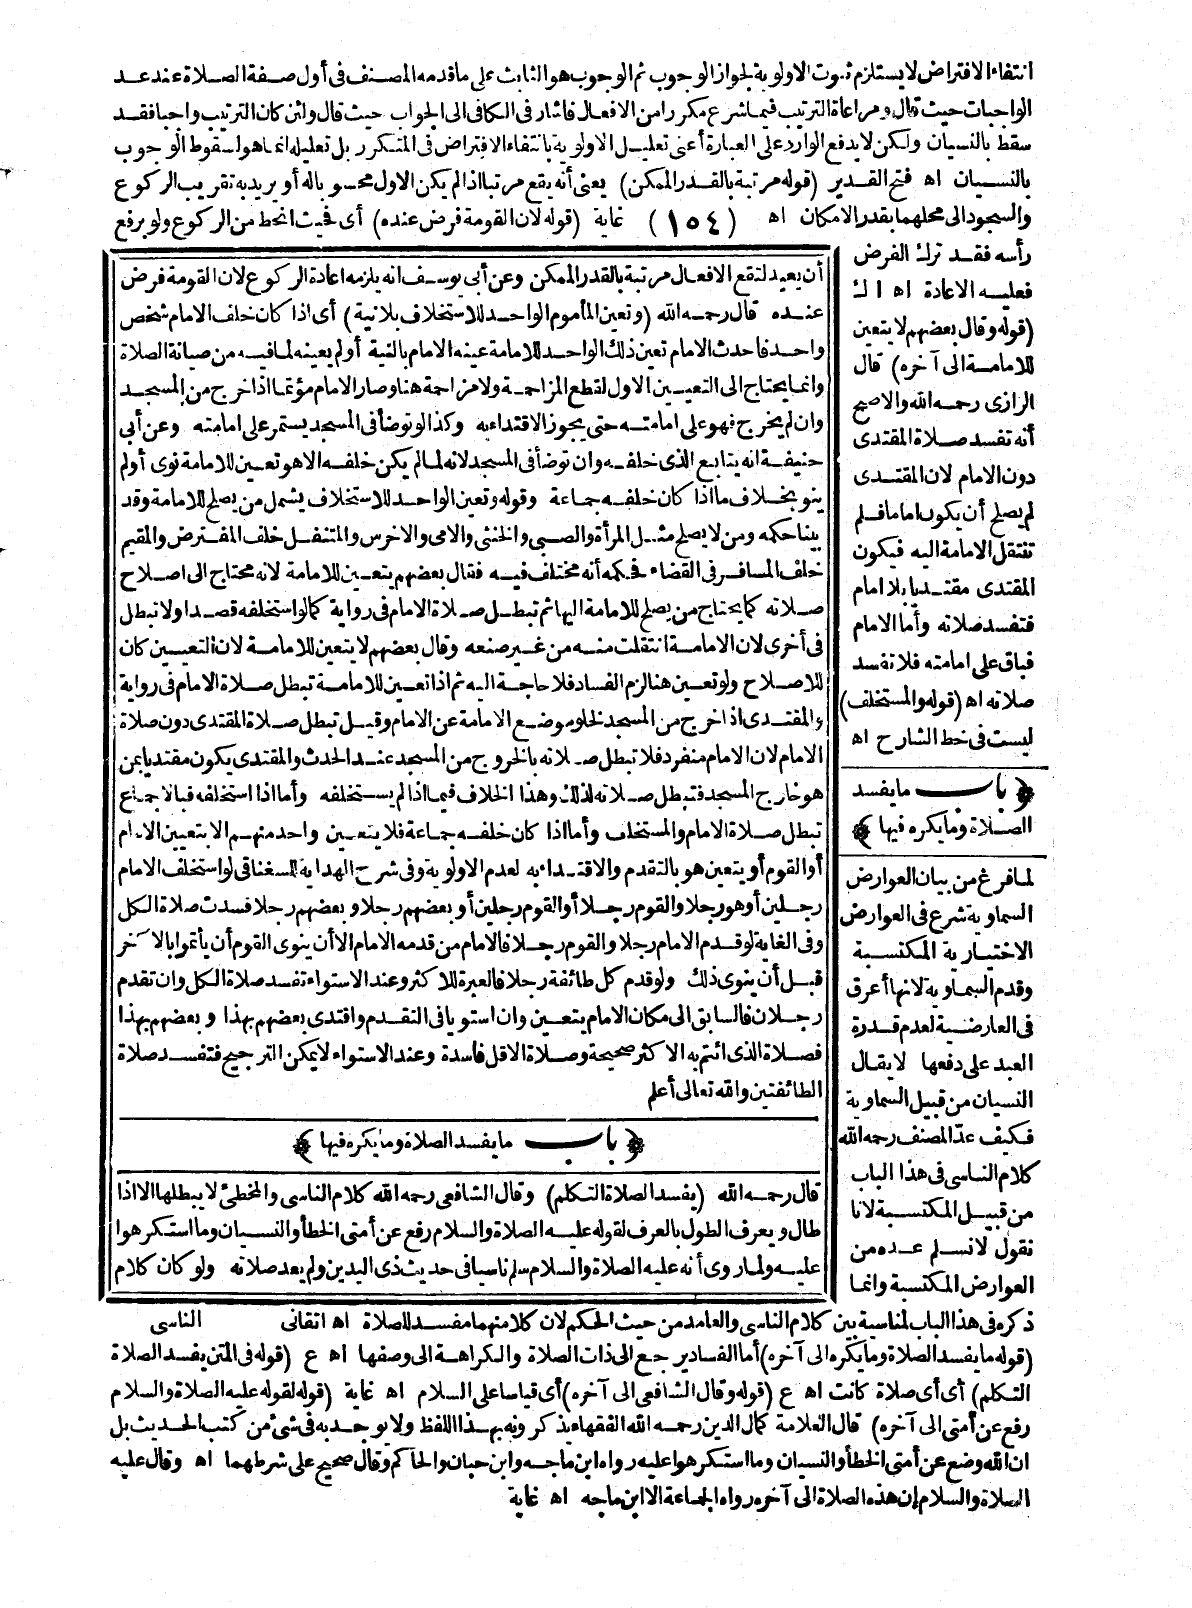 انتفاء الافتراض لا يستلزم ثبوت الاولوية لجواز الوجوب ثم الوجوب هو الثابت على ما قدمه المصنف فى أول صفة الصلاة عند عد
الواجبات حيث قال ومراعاة الترتيب فيما شرع مكررا من الافعال فاشار فى الكافى الى الجواب حيث قال ولئن كان الترتيب واجبا فقد
سقط بالنسيان ولكن لا يدفع الوارد على العبارة أعنى تعليل الاولوية بانتفاء الافتراض فى المتكرر بل تعليله انما هو سقوط الوجوب
بالنسيان اه فتح القدير (قوله مرتبة بالقدر الممكن) يعنى أنه يقع مرتبا اذا لم يكن الاول محسوبا له أو يريد به تقريب الركوع
والسجود الى محلهما بقدر الامكان اه (١٥٤) غاية (قوله لان القومة فرض عنده) أى فحيث انحط من الركوع ولو يرفع
رأسه فقد ترك الفرض
فعليه الاعادة اه اك
(قوله وقال بعضهم لا يتعين
للامامة الى آخره) قال
الرازى رحمه الله والاصح
أنه تفسد صلاة المقتدى
دون الامام لان المقتدى
لم يصلح أن يكون اماما فلم
تنتقل الامامة اليه فيكون
المقتدى مقتديا بلا امام
فتفسد صلاته وأما الامام
فباق على امامته فلا تفسد
صلاته اه (قوله والمستخلف)
ليست فى خط الشارح اه
﴿باب ما يفسد
الصلاة وما يكره فيها﴾
لما فرغ من بيان العوارض
السماوية شرع فى العوارض
الاختيارية المكتسبة
وقدم السماوية لانها أعرق
فى العارضية لعدم قدرة
العبد على دفعها لا يقال
النسيان من قبيل السماوية
فكيف عدّ المصنف رحمه الله
كلام الناسى فى هذا الباب
من قبيل المكتسبة لانا
نقول لا نسلم عده من
العوارض المكتسبة وانما
أن يعيد لتقع الافعال مرتبة بالقدر الممكن وعن أبى يوسف انه يلزمه اعادة الركوع لان القومة فرض
عنده قال رحمه الله (وتعين المأموم الواحد للاستخلاف بلا نية) أى اذا كان خلف الامام شخص
واحد فاحدث الامام تعين ذلك الواحد للامامة عينه الامام بالنية أو لم يعينه لما فيه من صيانة الصلاة
وانما يحتاج الى التعيين الاول لقطع المزاحمة ولا مزاحمة هنا وصار الامام مؤتما اذا خرج من المسجد
وان لم يخرج فهو على امامته حتى يجوز الاقتداء به وكذا لو توضأ فى المسجد يستمر على امامته وعن أبى
حنيفة انه يتابع الذى خلفه وان توضأ فى المسجد لانه لما لم يكن خلفه الا هو تعين للامامة نوى أو لم
ينو بخلاف ما اذا كان خلفه جماعة وقوله وتعين الواحد للاستخلاف يشمل من يصلح للامامة وقد
بينا حكمه ومن لا يصلح مثل المرأة والصبى والخنثى والامى والاخرس والمتنفل خلف المفترض والمقيم
خلف المسافر فى القضاء فحكمه أنه مختلف فيه فقال بعضهم يتعين للامامة لانه محتاج الى اصلاح
صلاته كما يحتاج من يصلح للامامة اليها ثم تبطل صلاة الامام فى رواية كما لو استخلفه قصدا ولا تبطل
فى أخرى لان الامامة انتقلت منه من غير صنعه وقال بعضهم لا يتعين للامامة لان التعيين كان
للاصلاح ولو تعين هنا لزم الفساد فلا حاجة اليه ثم اذا تعين للامامة تبطل صلاة الامام فى رواية
والمقتدى اذا خرج من المسجد لخلو موضع الامامة عن الامام وقيل تبطل صلاة المقتدى دون صلاة
الامام لان الامام منفرد فلا تبطل صلاته بالخروج من المسجد عند الحدث والمقتدى يكون مقتديا بمن
هو خارج المسجد فتبطل صلاته لذلك وهذا الخلاف فيما اذا لم يستخلفه وأما اذا استخلفه فبالاجماع
تبطل صلاة الامام والمستخلف وأما اذا كان خلفه جماعة فلا يتعين واحد منهم الا بتعيين الامام
أو القوم أو يتعين هو بالتقدم والاقتداء به لعدم الاولوية وفى شرح الهداية للسغناقى لو استخلف الامام
رجلين أو هو رجلا والقوم رجلا أو القوم رجلين أو بعضهم رجلا وبعضهم رجلا فسدت صلاة الكل
وفى الغاية لو قدم الامام رجلا والقوم رجلا فالامام من قدمه الامام الا أن ينوى القوم أن يأتموا بالآخر
قبل أن ينوى ذلك ولو قدم كل طائفة رجلا فالعبرة للاكثر وعند الاستواء تفسد صلاة الكل وان تقدم
رجلان فالسابق الى مكان الامام يتعين وان استويا فى التقدم واقتدى بعضهم بهذا وبعضهم بهذا
فصلاة الذى ائتم به الاكثر صحيحة وصلاة الاقل فاسدة وعند الاستواء لا يمكن الترجيح فتفسد صلاة
الطائفتين والله تعالى أعلم
﴿باب ما يفسد الصلاة وما يكره فيها﴾
قال رحمه الله (يفسد الصلاة التكلم) وقال الشافعى رحمه الله كلام الناسى والمخطئ لا يبطلها الا اذا
طال ويعرف الطول بالعرف لقوله عليه الصلاة والسلام رفع عن أمتى الخطأ والنسيان وما استكرهوا
عليه ولما روى أنه عليه الصلاة والسلام سلم ناسيا فى حديث ذى اليدين ولم يعد صلاته ولو كان كلام
ذكره فى هذا الباب لمناسبة بين كلام الناسى والعامد من حيث الحكم لان كلا منهما مفسد للصلاة اه اتقانى الناسى
(قوله ما يفسد الصلاة وما يكره الى آخره) أما الفساد يرجع الى ذات الصلاة والكراهة الى وصفها اه ع (قوله فى المتن يفسد الصلاة
التكلم) أى أى صلاة كانت اه ع (قوله وقال الشافعى الى آخره) أى قياسا على السلام اه غاية (قوله لقوله عليه الصلاة والسلام
رفع عن أمتى الى آخره) قال العلامة كمال الدين رحمه الله الفقهاء يذكرونه بهذا اللفظ ولا يوجد به فى شئ من كتب الحديث بل
ان الله وضع عن أمتى الخطأ والنسيان وما استكرهوا عليه رواه ابن ماجه وابن حبان والحاكم وقال صحيح على شرطهما اه وقال عليه
الصلاة والسلام إن هذه الصلاة الى آخره رواه الجماعة الا ابن ماجه اه غاية